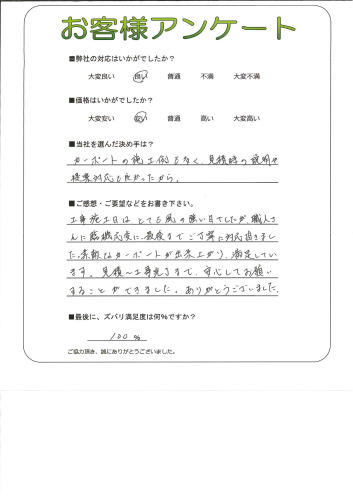 お客様アンケート
■弊社の対応はいかがでしたか？
大変良い 良い 普通 不満 大変不満
■価格はいかがでしたか？
大変安い 安い 普通 高い 大変高い
■当社を選んだ決め手は？
カーポートの施工例も多く、見積時の説明や
提案対応も良かったから。
■ご感想・ご要望などをお書き下さい。
工事施工日はとても風の強い日でしたが、職人さ
んに臨機応変に、最後までご丁寧に対応頂きまし
た。素敵なカーポートが出来上がり、満足してい
ます。見積～工事完了まで、安心してお願い
することができました。ありがとうございました。
■最後に、ズバリ満足度は何％ですか？
100 %
ご協力頂き、誠にありがとうございました。